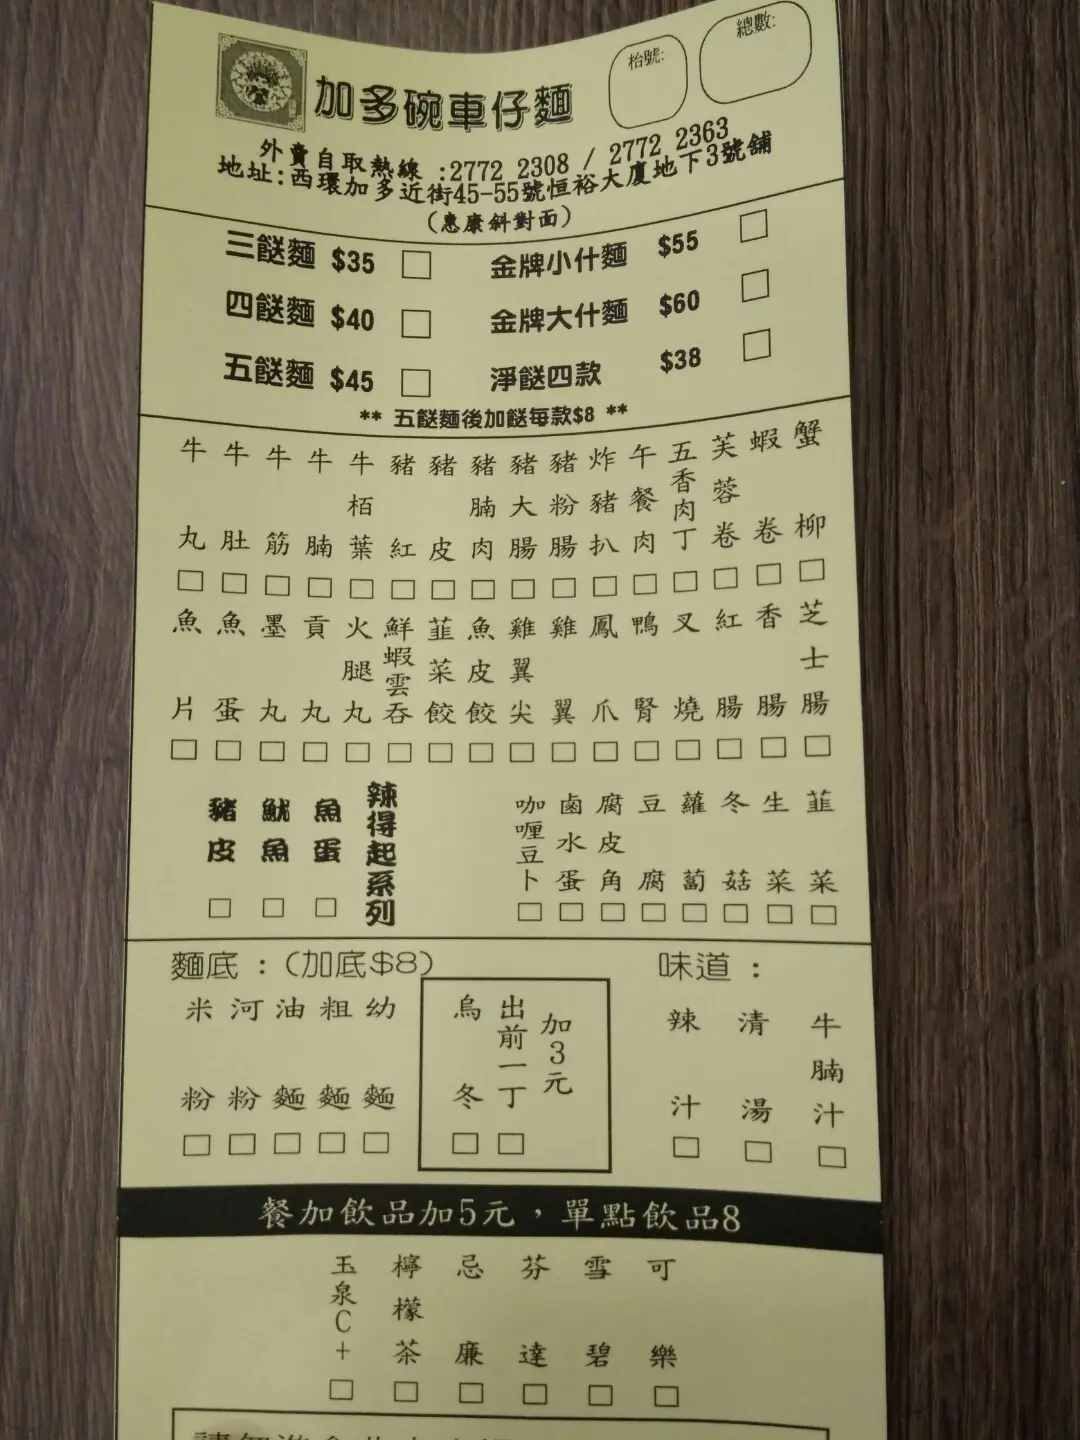 枱號:
總數:
加多碗車仔麵
外賣自取熱線 :2772 2308 / 2772 2363
地址:西環加多近街45-55號恒裕大廈地下3號舖
(惠康斜對面)
三餸麵 $35 金牌小什麵 $55
四餸麵 $40 金牌大什麵 $60
五餸麵 $45 淨餸四款 $38
** 五餸麵後加餸每款$8 **
牛丸
牛肚
牛筋
牛腩
牛栢葉
豬紅
豬皮
豬腩肉
豬大腸
豬粉腸
炸豬扒
午餐肉
五香肉丁
芙蓉卷
蝦卷
蟹柳
魚片
魚蛋
墨丸
貢丸
火腿丸
鮮蝦雲吞
韮菜餃
魚皮餃
雞翼尖
雞翼
鳳爪
鴨腎
叉燒
紅腸
香腸
芝士腸
辣得起系列
魚蛋
魷魚
豬皮
咖喱豆卜
鹵水蛋
腐皮角
豆腐
蘿蔔
冬菇
生菜
韮菜
麵底：(加底$8)
米粉
河粉
油麵
粗麵
幼麵
烏冬
出前一丁
加3元
味道：
辣汁
清湯
牛腩汁
餐加飲品加5元，單點飲品8
玉泉C+
檸檬茶
忌廉
芬達
雪碧
可樂